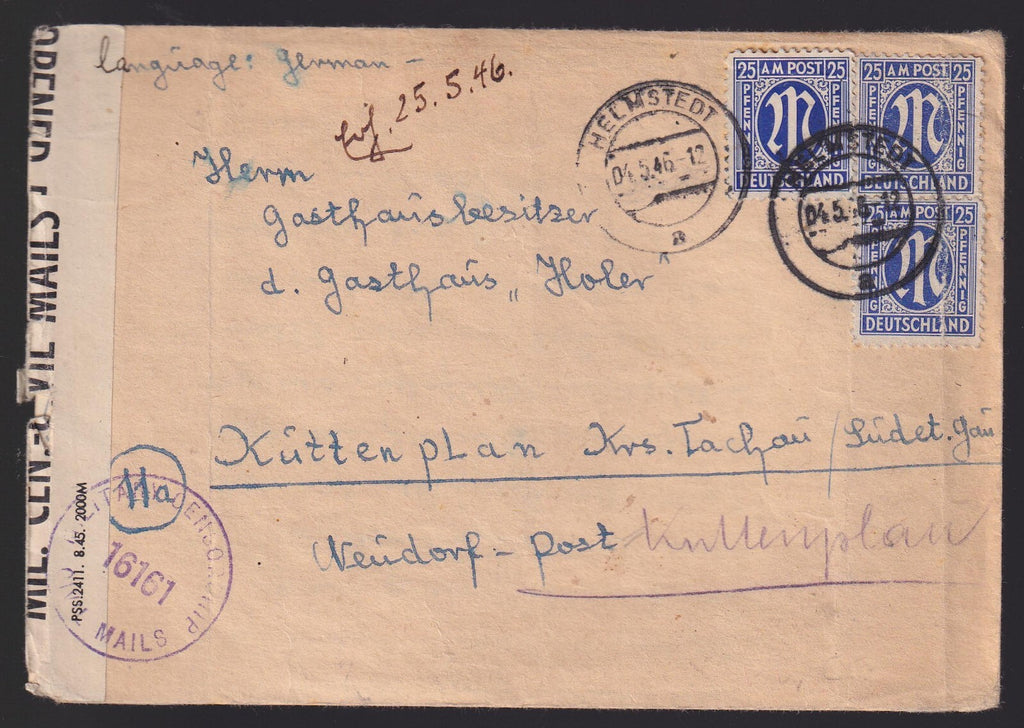 language: German –
erh. 25.5.46.
Herrn
Gasthausbesitzer
d. Gasthaus „Holer"
Kuttenplan Krs. Tachau / Sudet. Gau
Neudorf – Post Kuttenplan
11a
25 AM POST 25
PFENNIG PFENNIG
DEUTSCHLAND
25 AM POST 25
PFENNIG PFENNIG
DEUTSCHLAND
25 AM POST 25
PFENNIG PFENNIG
DEUTSCHLAND
HELMSTEDT
04.5.46-12
a
HELMSTEDT
04.5.46-12
a
MIL. CEN. CIVIL MAILS
OPENED
PSS 2411. 8.45. 2000M
MILITARY CENSORSHIP
16161
MAILS